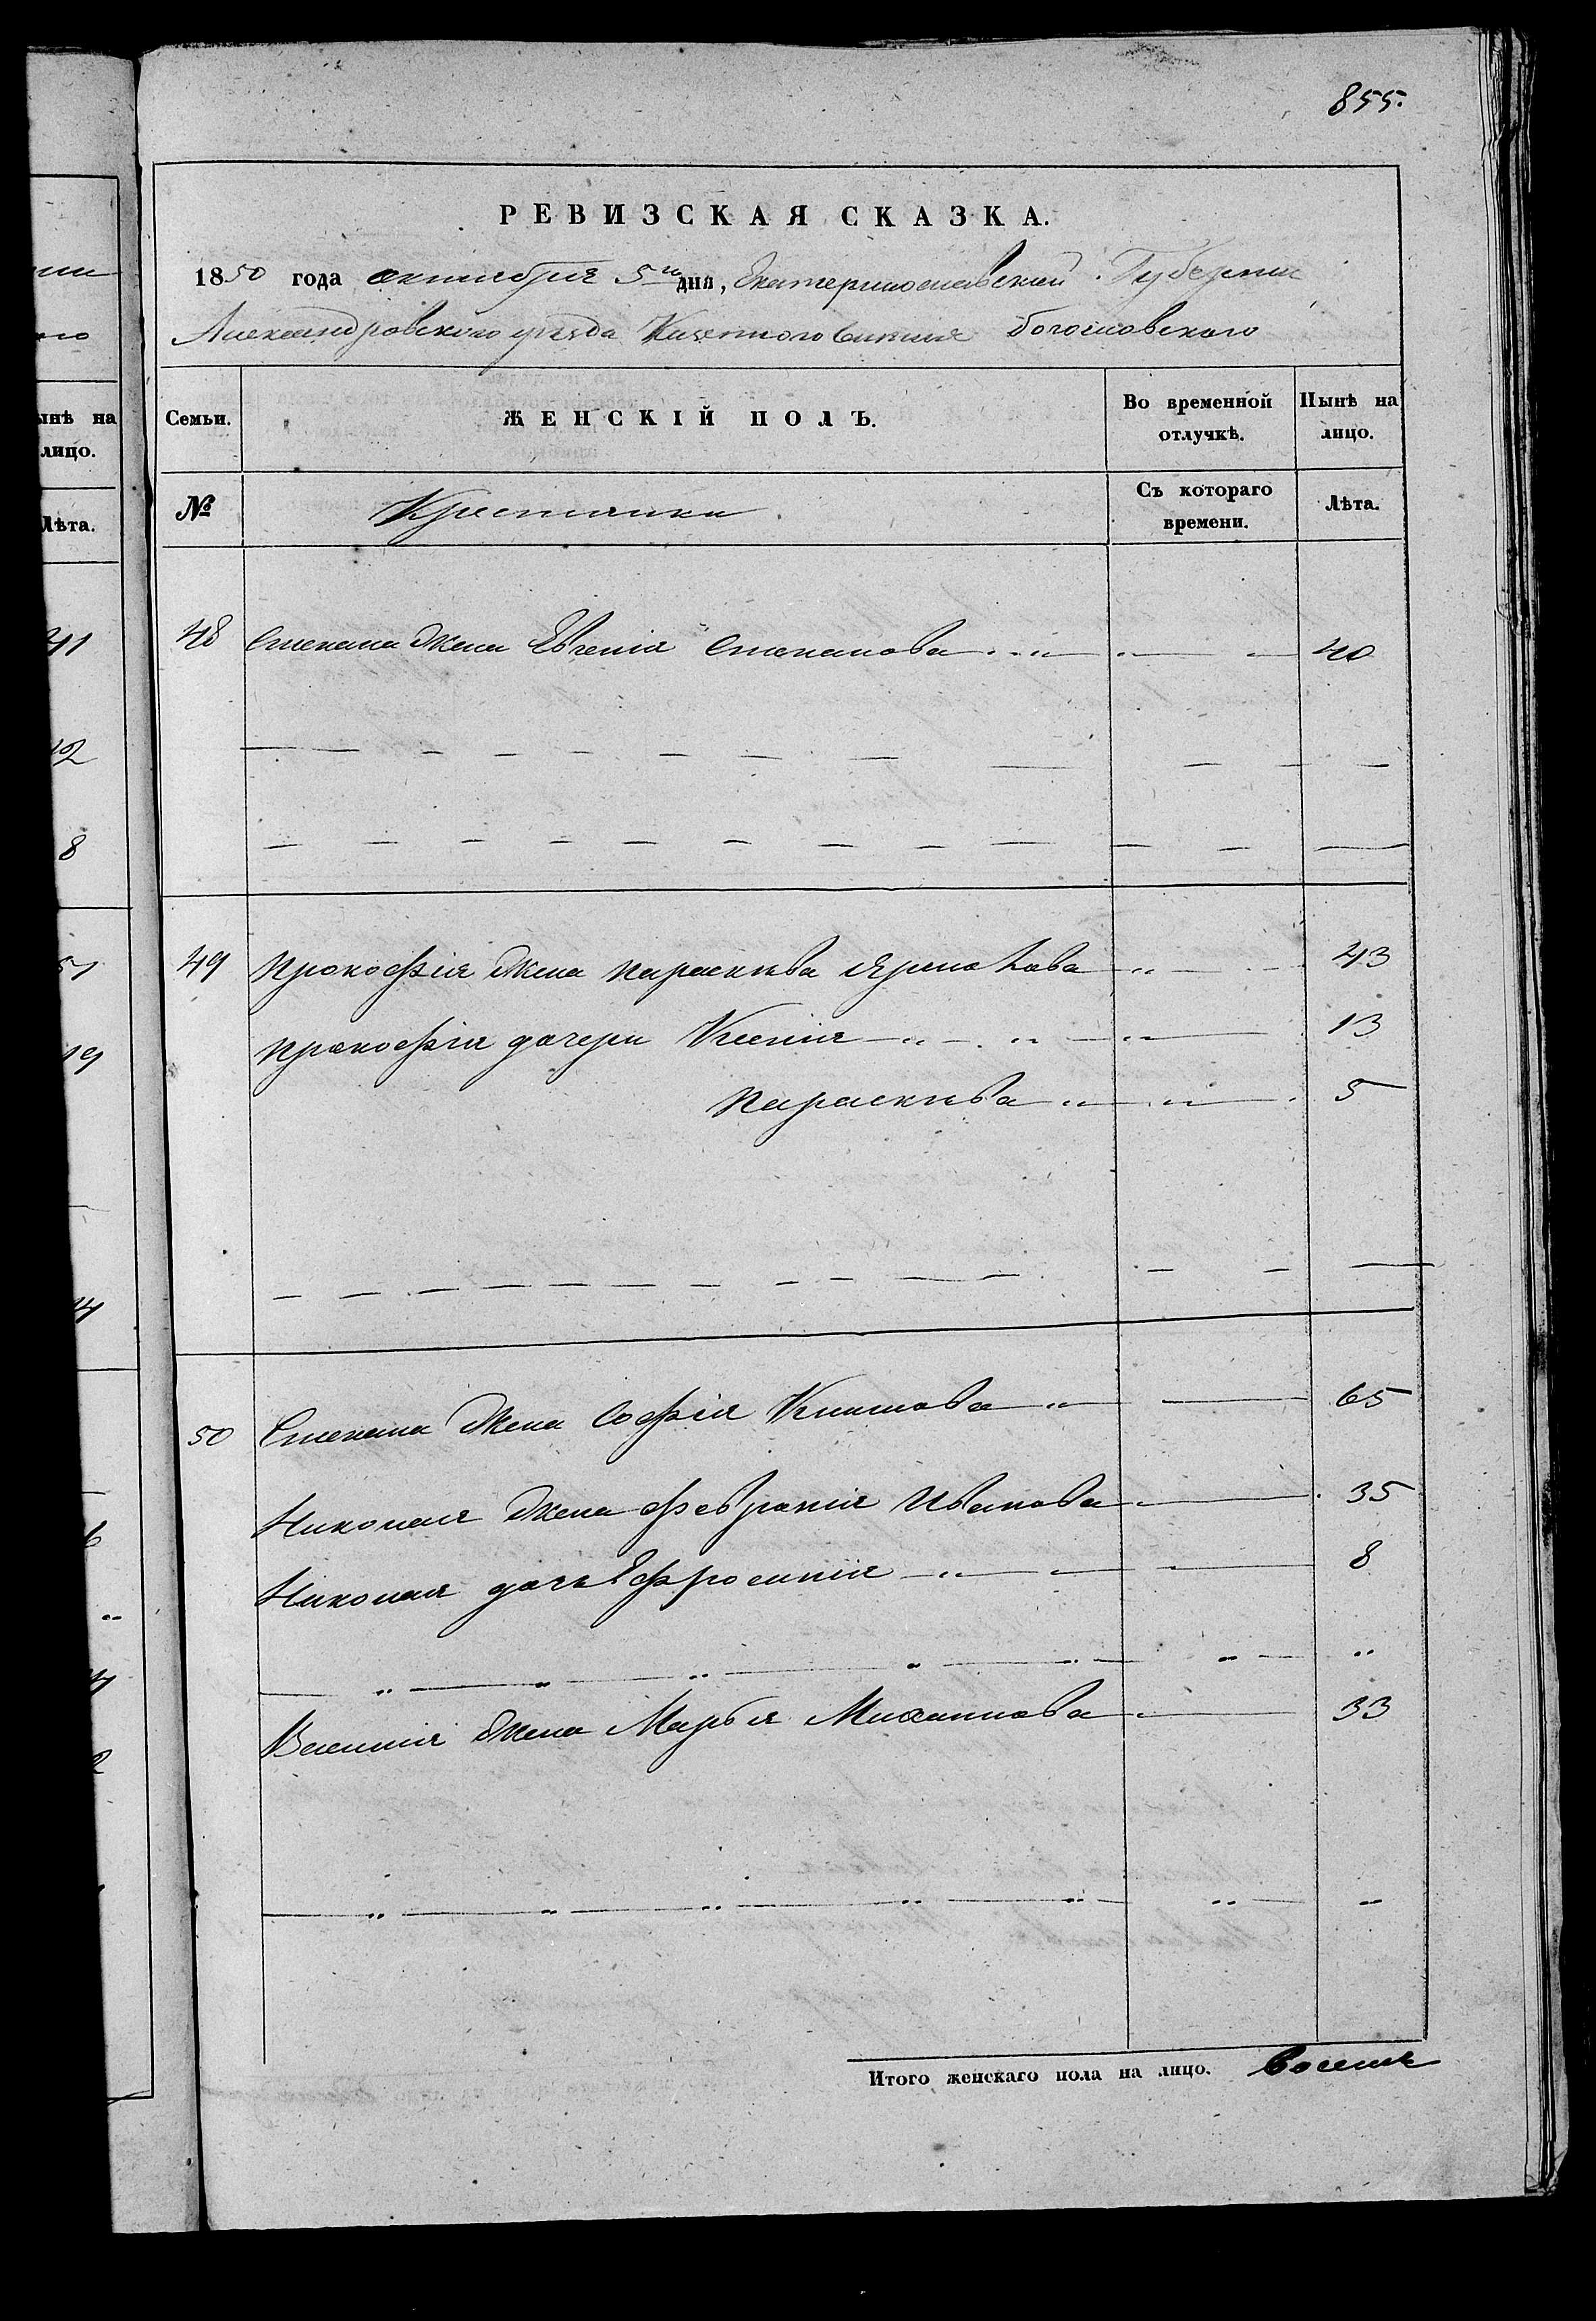 855.
РЕВИЗСКАЯ СКАЗКА.
1850 года октября 5го дня, Екатеринославской Губернии
Александровского уезда Казенного Селения Богословского
Семьи. ЖЕНСКІЙ ПОЛЪ. Во временной отлучкѣ. Нынѣ на лицо.
№ Крестянки Съ котораго времени. Лѣта.
48 Степана жена Евгенія Степанова 40
49 Прокофія жена Параскѣва 43
Прокофія дочери Ксенія 13
Параскѣва 5
50 Степана жена Софія 65
Николая жена Февронія Иванова 35
Николая дочь Ефросинія 8
Василія жена Марья Михаилова 33
Итого женскаго пола на лицо. Восемь
ынѣ на
лицо.
Лѣта.
41
12
8
51
19